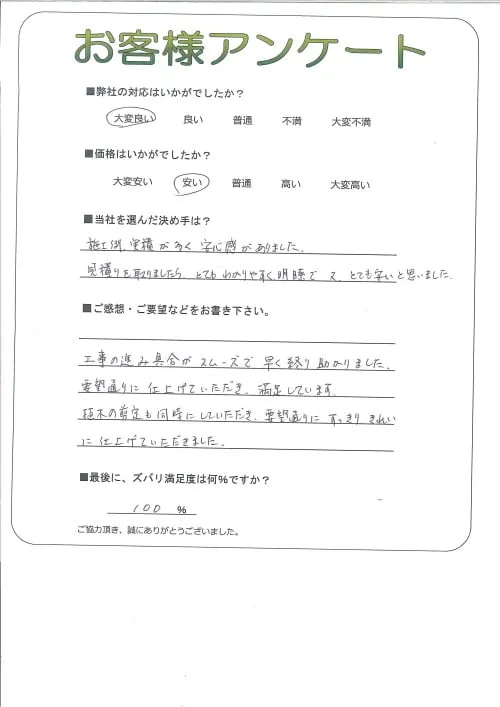 お客様アンケート
■弊社の対応はいかがでしたか？
大変良い 良い 普通 不満 大変不満
■価格はいかがでしたか？
大変安い 安い 普通 高い 大変高い
■当社を選んだ決め手は？
施工例、実積が多く安心感がありました。
見積りを取りましたら、とてもわかりやすく明瞭で又、とても安いと思いました。
■ご感想・ご要望などをお書き下さい。
工事の進み具合がスムーズで早く終り助かりました。
要望通りに仕上げていただき、満足しています。
植木の剪定も同時にしていただき、要望通りにすっきりきれい
に仕上げていただきました。
■最後に、ズバリ満足度は何％ですか？
100 ％
ご協力頂き、誠にありがとうございました。